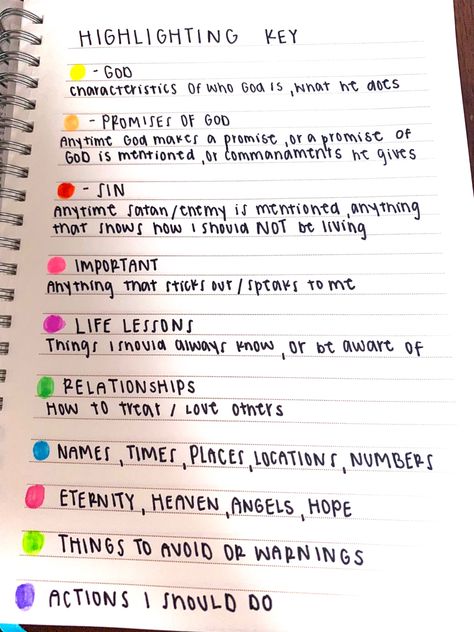 HIGHLIGHTING KEY
- GOD
characteristics of who God is, what he does
- PROMISES OF GOD
Anytime God makes a promise, or a promise of
GOD is mentioned, or commandments he gives
- SIN
Anytime Satan/enemy is mentioned, anything
that shows how I should NOT be living
IMPORTANT
Anything that sticks out / speaks to me
LIFE LESSONS
Things I should always know, or be aware of
RELATIONSHIPS
How to treat / love others
NAMES, TIMES, PLACES, LOCATIONS, NUMBERS
ETERNITY, HEAVEN, ANGELS, HOPE
THINGS TO AVOID OR WARNINGS
ACTIONS I SHOULD DO